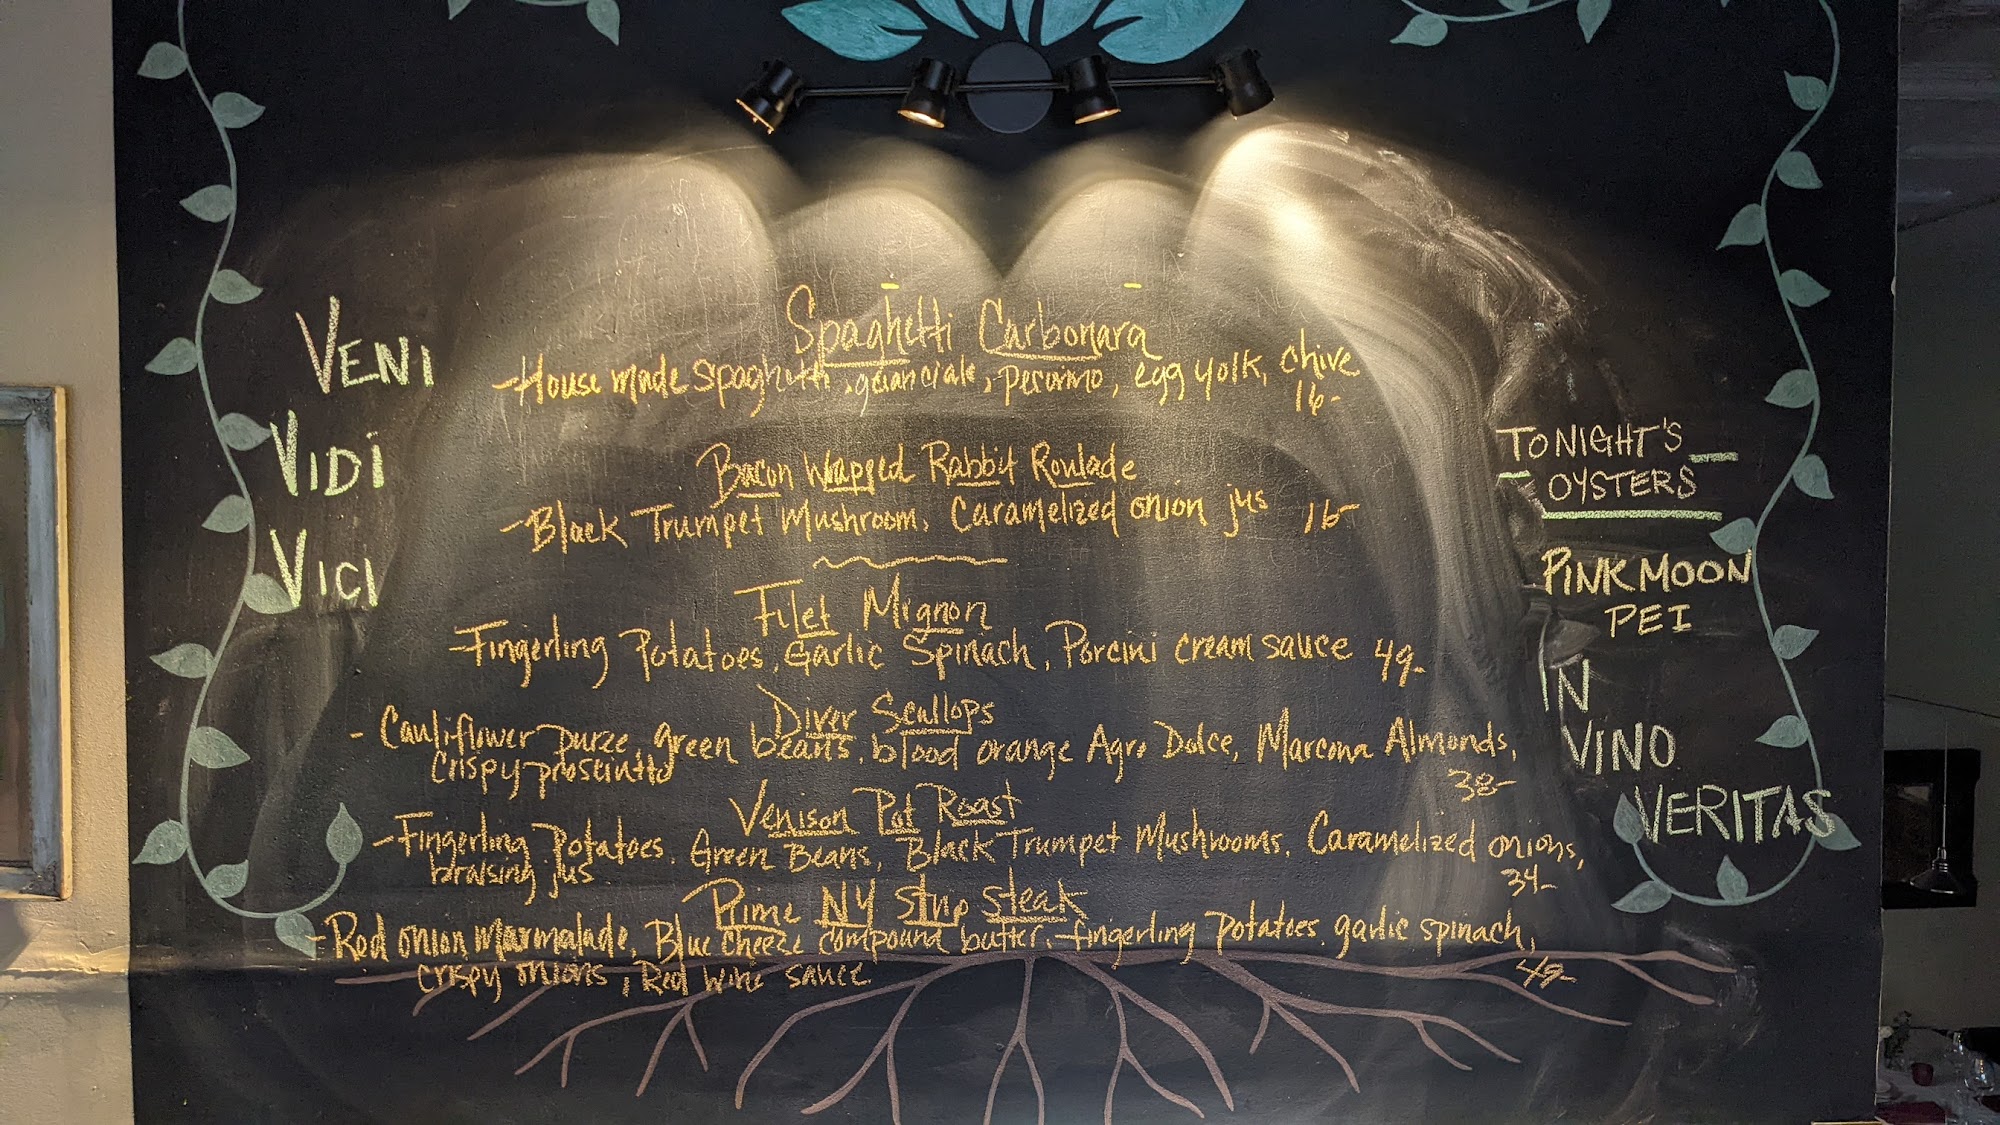 VENI
VIDI
VICI
Spaghetti Carbonara
- House made spaghetti, guanciale, pecorino, egg yolk, chive
16-
Bacon Wrapped Rabbit Roulade
- Black Trumpet Mushroom, Caramelized onion jus 16-
Filet Mignon
- Fingerling Potatoes, Garlic Spinach, Porcini cream sauce 49-
Diver Scallops
- Cauliflower puree, green beans, blood orange Agro Dolce, Marcona Almonds,
crispy prosciutto
38-
Venison Pot Roast
- Fingerling Potatoes, Green Beans, Black Trumpet Mushrooms, Caramelized onions,
braising jus
34-
Prime NY Strip Steak
- Red onion marmalade, Blue cheeze compound butter, fingerling potatoes, garlic spinach,
crispy onions, Red wine sauce
49-
TONIGHT'S
OYSTERS
PINK MOON
PEI
IN
VINO
VERITAS